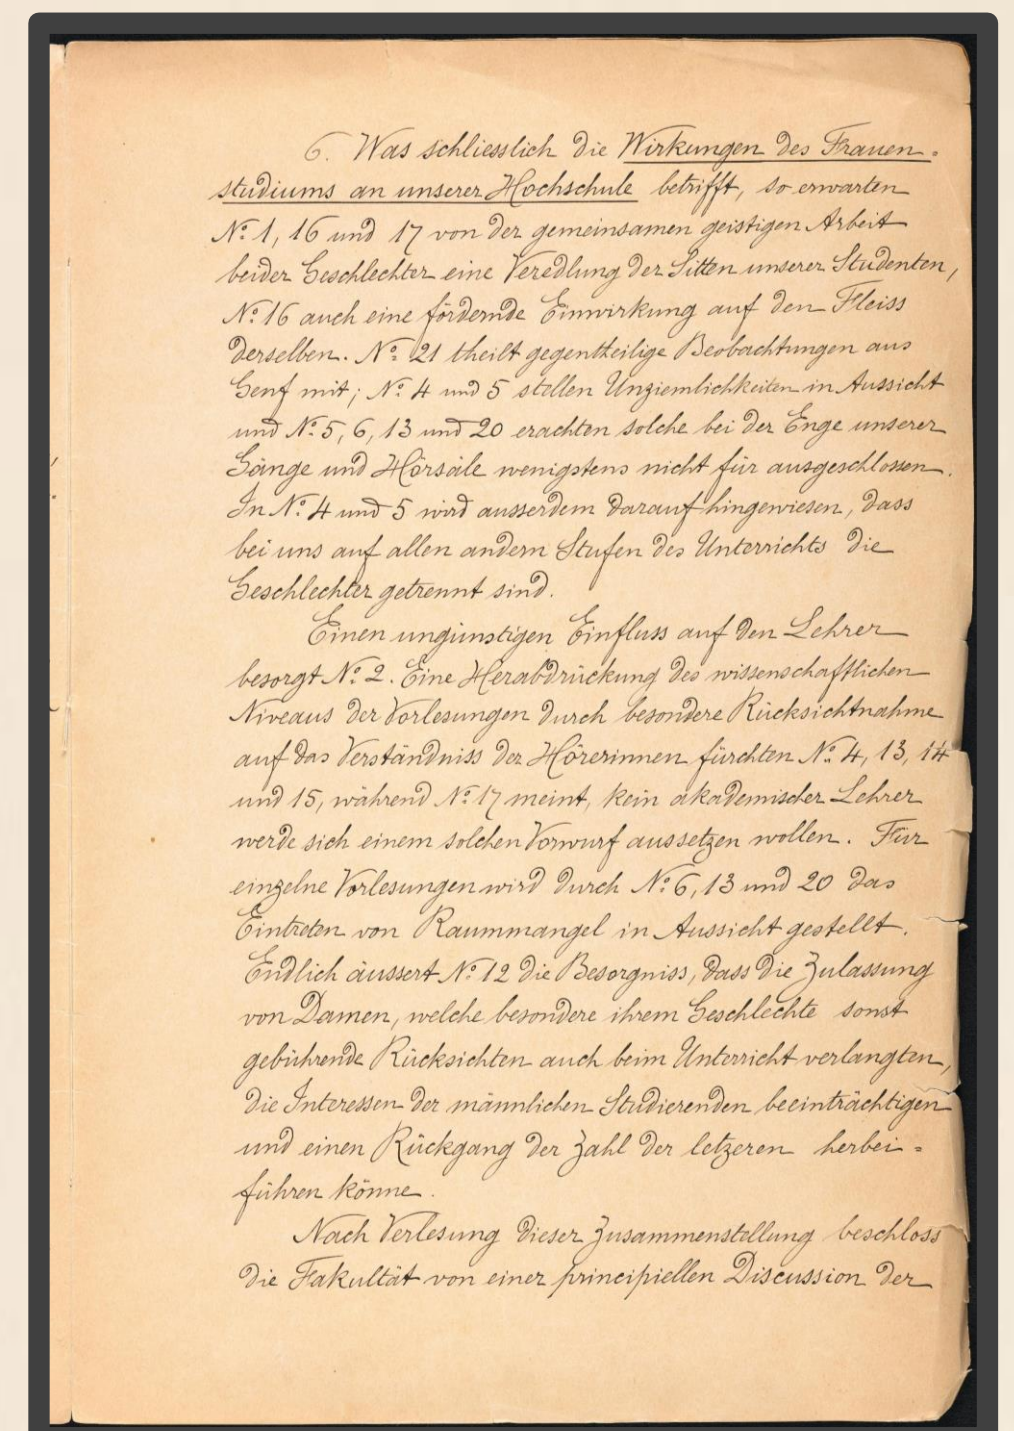 6. Was schliesslich die Wirkungen des Frauen-
studiums an unserer Hochschule betrifft, so erwarten
No. 1, 16 und 17 von der gemeinsamen geistigen Arbeit
beider Geschlechter eine Veredlung der Sitten unserer Studenten,
No. 16 auch eine fördernde Einwirkung auf den Fleiss
derselben. No. 21 theilt gegentheilige Beobachtungen aus
Genf mit; No. 4 und 5 stellen Unziemlichkeiten in Aussicht
und No. 5, 6, 13 und 20 erachten solche bei der Enge unserer
Gänge und Hörsäle wenigstens nicht für ausgeschlossen.
In No. 4 und 5 wird ausserdem darauf hingewiesen, dass
bei uns auf allen andern Stufen des Unterrichts die
Geschlechter getrennt sind.
Einen ungünstigen Einfluss auf den Lehrer
besorgt No. 2. Eine Herabdrückung des wissenschaftlichen
Niveaus der Vorlesungen durch besondere Rücksichtnahme
auf das Verständniss der Hörerinnen fürchten No. 4, 13, 14
und 15, während No. 17 meint, kein akademischer Lehrer
werde sich einem solchen Vorwurf aussetzen wollen. Für
einzelne Vorlesungen wird durch No. 6, 13 und 20 das
Eintreten von Raummangel in Aussicht gestellt.
Endlich äussert No. 12 die Besorgniss, dass die Zulassung
von Damen, welche besondere ihrem Geschlechte sonst
gebührende Rücksichten auch beim Unterricht verlangten,
die Interessen der männlichen Studierenden beeinträchtigen
und einen Rückgang der Zahl der letzeren herbei-
führen könne.
Nach Verlesung dieser Zusammenstellung beschloss
die Fakultät von einer principiellen Discussion der